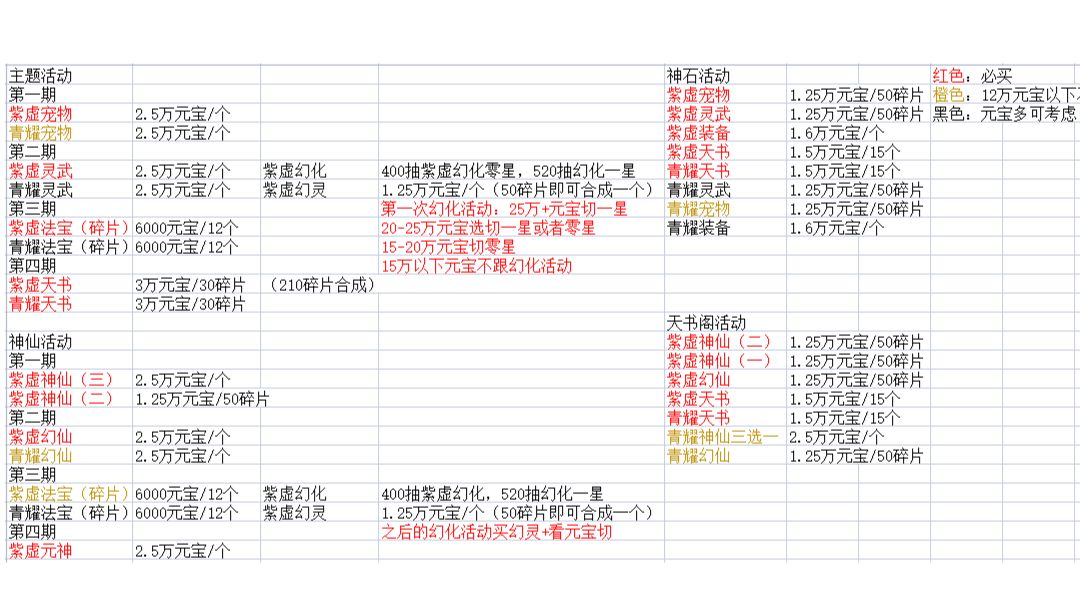 主题活动 神石活动 红色：必买
第一期 紫虚宠物 1.25万元宝/50碎片 橙色：12万元宝以下
紫虚宠物 2.5万元宝/个 紫虚灵武 1.25万元宝/50碎片 黑色：元宝多可考虑
青耀宠物 2.5万元宝/个 紫虚装备 1.6万元宝/个
第二期 紫虚天书 1.5万元宝/15个
紫虚灵武 2.5万元宝/个 紫虚幻化 400抽紫虚幻化零星，520抽幻化一星 青耀天书 1.5万元宝/15个
青耀灵武 2.5万元宝/个 紫虚幻灵 1.25万元宝/个（50碎片即可合成一个） 青耀灵武 1.25万元宝/50碎片
第三期 第一次幻化活动：25万+元宝切一星 青耀宠物 1.25万元宝/50碎片
紫虚法宝（碎片） 6000元宝/12个 20-25万元宝选切一星或者零星 青耀装备 1.6万元宝/个
青耀法宝（碎片） 6000元宝/12个 15-20万元宝切零星
第四期 15万以下元宝不跟幻化活动
紫虚天书 3万元宝/30碎片 （210碎片合成）
青耀天书 3万元宝/30碎片
天书阁活动
神仙活动 紫虚神仙（二） 1.25万元宝/50碎片
第一期 紫虚神仙（一） 1.25万元宝/50碎片
紫虚神仙（三） 2.5万元宝/个 紫虚幻仙 1.25万元宝/50碎片
紫虚神仙（二） 1.25万元宝/50碎片 紫虚天书 1.5万元宝/15个
第二期 青耀天书 1.5万元宝/15个
紫虚幻仙 2.5万元宝/个 青耀神仙三选一 2.5万元宝/个
青耀幻仙 2.5万元宝/个 青耀幻仙 1.25万元宝/50碎片
第三期
紫虚法宝（碎片） 6000元宝/12个 紫虚幻化 400抽紫虚幻化，520抽幻化一星
青耀法宝（碎片） 6000元宝/12个 紫虚幻灵 1.25万元宝/个（50碎片即可合成一个）
第四期 之后的幻化活动买幻灵+看元宝切
紫虚元神 2.5万元宝/个